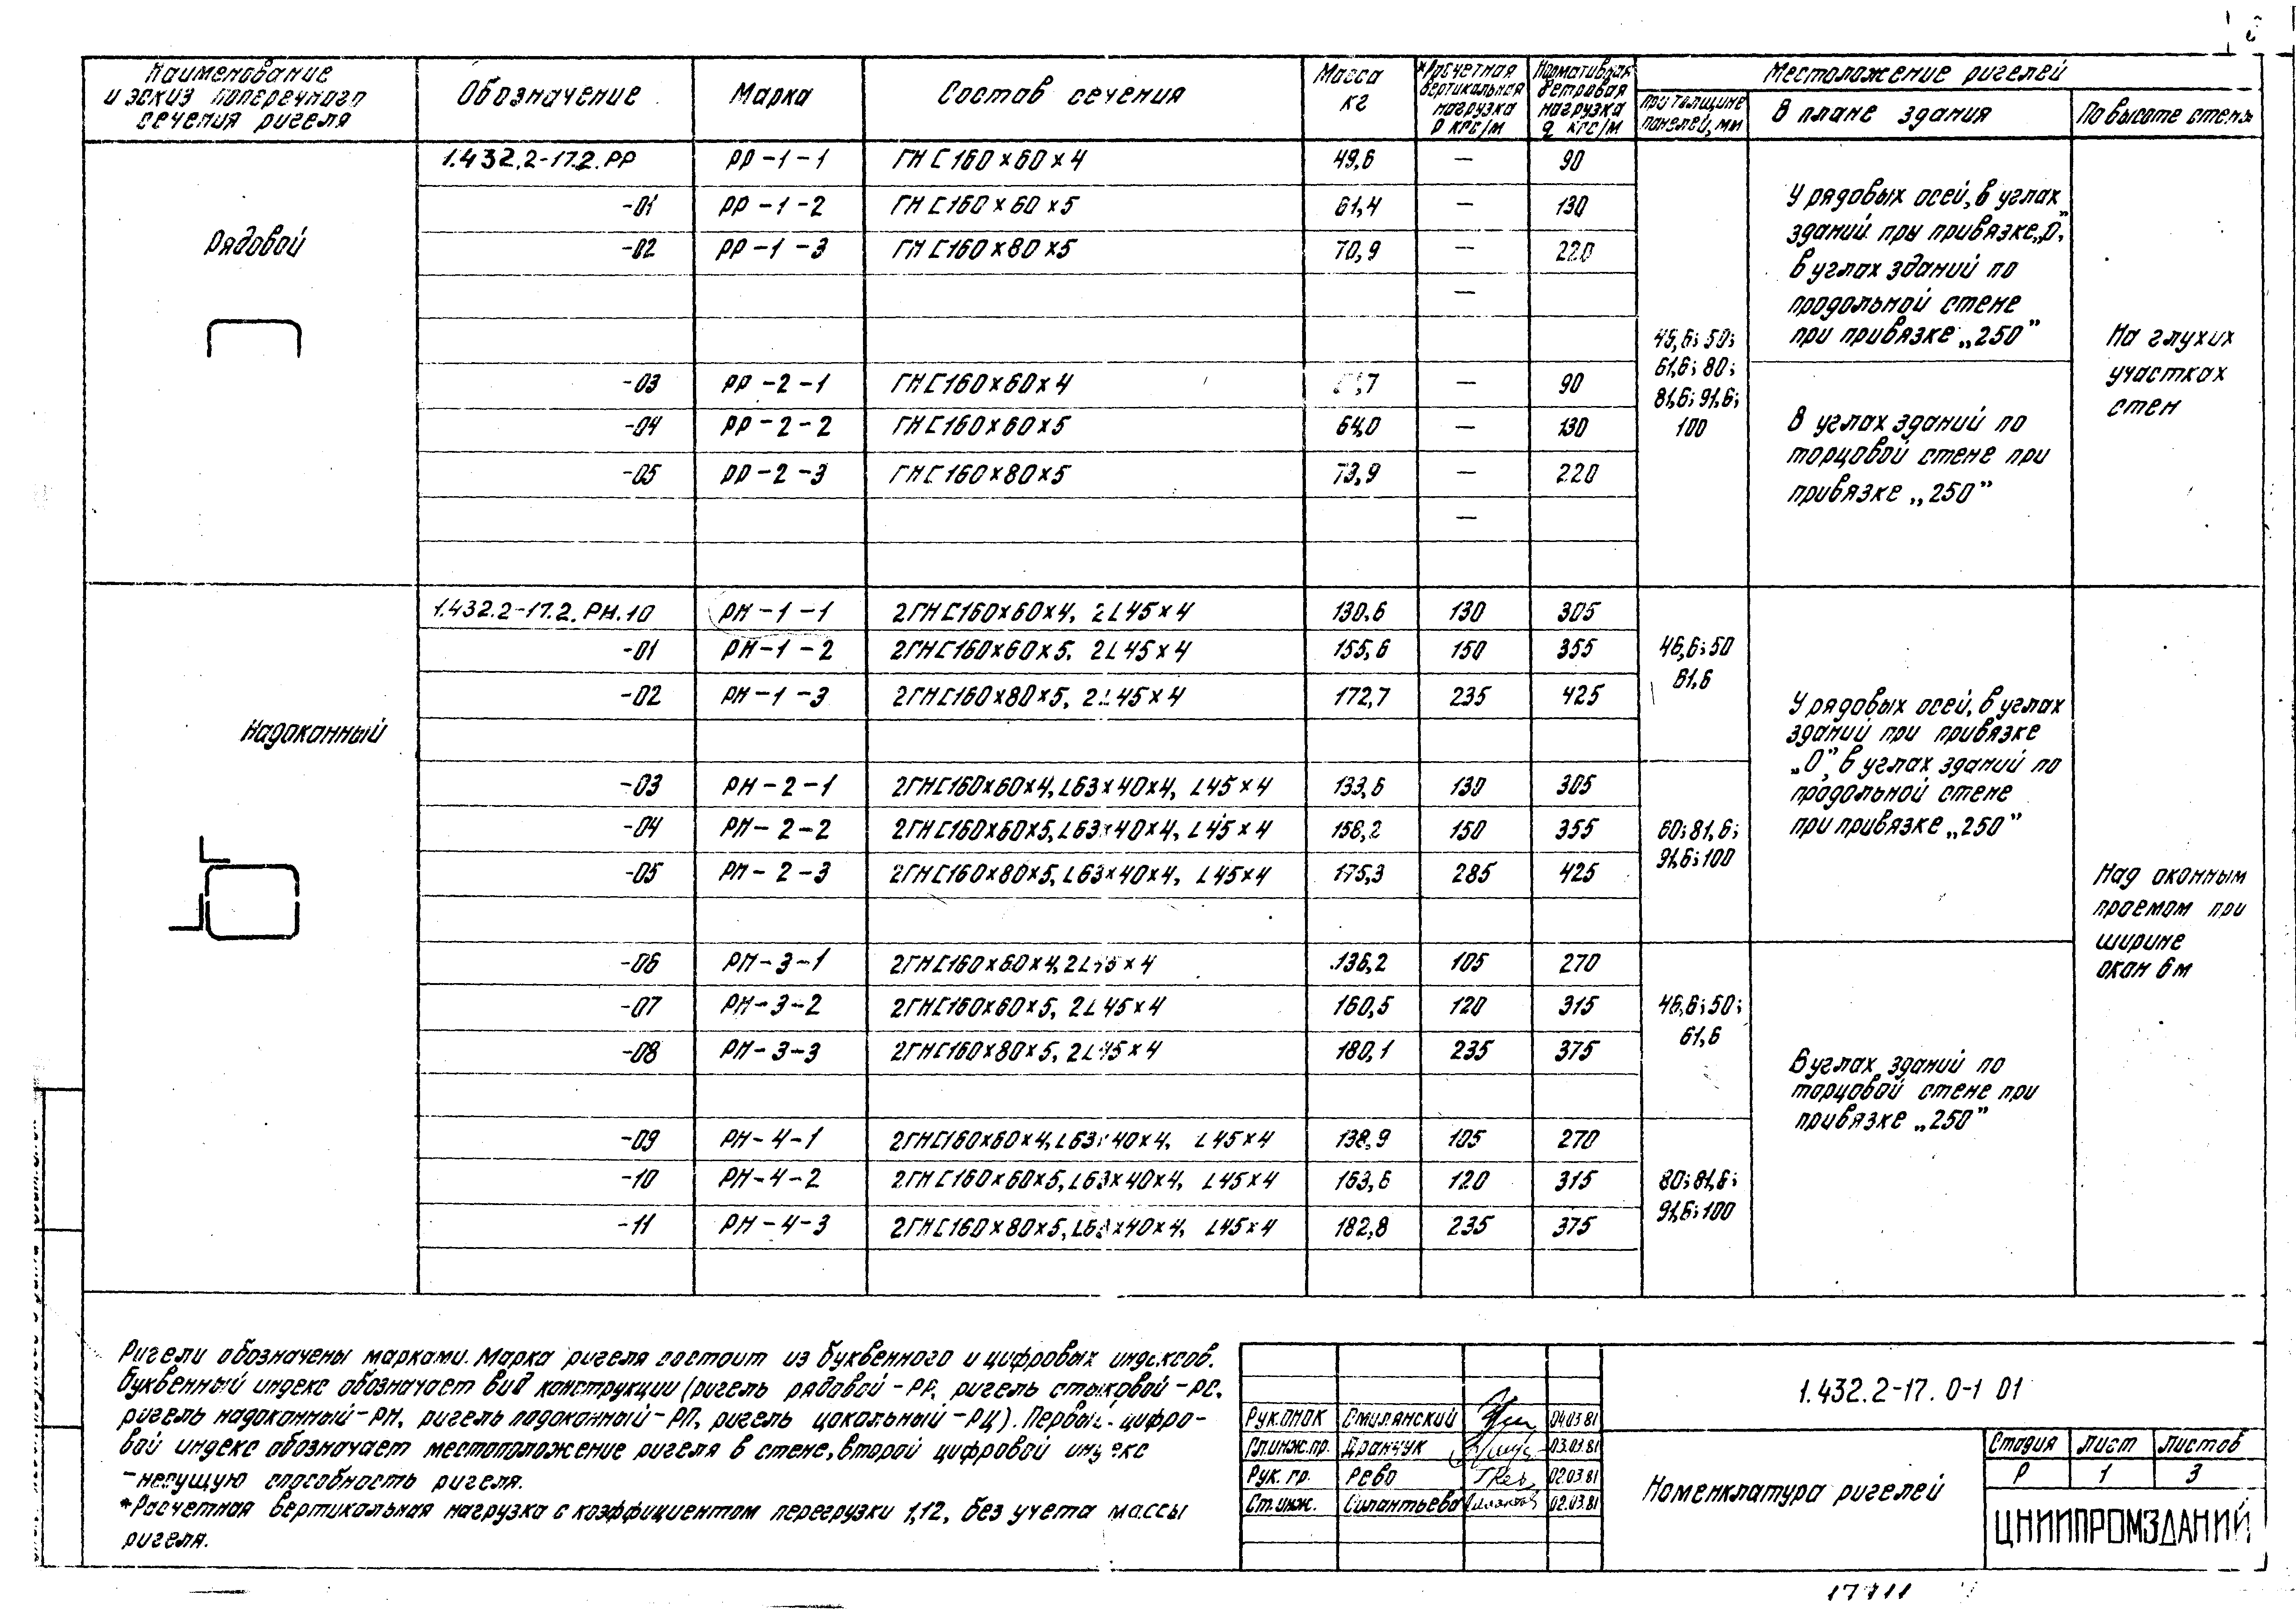 Наименование и эскиз поперечного сечения ригеля | Обозначение | Марка | Состав сечения | Масса кг | *Расчетная вертикальная нагрузка р кгс/м | Нормативная ветровая нагрузка q кгс/м | Местоположение ригелей
при толщине панелей, мм | В плане здания | По высоте стены
Рядовой
1.432.2-17.2.РР | РР-1-1 | ГН [160×60×4 | 49,6 | — | 90
-01 | РР-1-2 | ГН [160×60×5 | 61,4 | — | 130
-02 | РР-1-3 | ГН [160×80×5 | 70,9 | — | 220
—
-03 | РР-2-1 | ГН [160×60×4 | ,7 | — | 90
-04 | РР-2-2 | ГН [160×60×5 | 64,0 | — | 130
-05 | РР-2-3 | ГН [160×80×5 | 73,9 | — | 220
—
45,6; 50;
61,6; 80;
81,6; 91,6;
100
У рядовых осей, в углах
зданий при привязке „0”,
в углах зданий по
продольной стене
при привязке „250”
В углах зданий по
торцовой стене при
привязке „250”
На глухих
участках
стен
Надоконный
1.432.2-17.2.РН.10 | РН-1-1 | 2ГН [160×60×4, 2∟45×4 | 130,6 | 130 | 305
-01 | РН-1-2 | 2ГН [160×60×5, 2∟45×4 | 155,6 | 150 | 355
-02 | РН-1-3 | 2ГН [160×80×5, 2∟45×4 | 172,7 | 235 | 425
-03 | РН-2-1 | 2ГН [160×60×4, ∟63×40×4, ∟45×4 | 133,6 | 130 | 305
-04 | РН-2-2 | 2ГН [160×60×5, ∟63×40×4, ∟45×4 | 158,2 | 150 | 355
-05 | РН-2-3 | 2ГН [160×80×5, ∟63×40×4, ∟45×4 | 175,3 | 285 | 425
-06 | РН-3-1 | 2ГН [160×60×4, 2∟45×4 | 136,2 | 105 | 270
-07 | РН-3-2 | 2ГН [160×60×5, 2∟45×4 | 160,5 | 120 | 315
-08 | РН-3-3 | 2ГН [160×80×5, 2∟45×4 | 180,1 | 235 | 375
-09 | РН-4-1 | 2ГН [160×60×4, ∟63×40×4, ∟45×4 | 138,9 | 105 | 270
-10 | РН-4-2 | 2ГН [160×60×5, ∟63×40×4, ∟45×4 | 163,6 | 120 | 315
-11 | РН-4-3 | 2ГН [160×80×5, ∟63×40×4, ∟45×4 | 182,8 | 235 | 375
46,6; 50
61,6
80; 81,6;
91,6; 100
46,6; 50;
61,6
80; 81,6;
91,6; 100
У рядовых осей, в углах
зданий при привязке
„0”, в углах зданий по
продольной стене
при привязке „250”
В углах зданий по
торцовой стене при
привязке „250”
Над оконным
проемом при
ширине
окон 6м
Ригели обозначены марками. Марка ригеля состоит из буквенного и цифровых индексов.
Буквенный индекс обозначает вид конструкции (ригель рядовой - РР, ригель стыковой - РС,
ригель надоконный - РН, ригель подоконный - РП, ригель цокольный - РЦ). Первый цифро-
вой индекс обозначает местоположение ригеля в стене, второй цифровой индекс
- несущую способность ригеля.
*Расчетная вертикальная нагрузка с коэффициентом перегрузки 1,12, без учета массы
ригеля.
Рук.ОНОК | Смилянский | 04.03.81
Гл.инж.пр. | Дранчук | 03.03.81
Рук. гр. | Рево | 02.03.81
Ст.инж. | Силантьева | 02.03.81
1.432.2-17. 0-1 01
Номенклатура ригелей
Стадия | Лист | Листов
Р | 1 | 3
ЦНИИПРОМЗДАНИЙ
17711